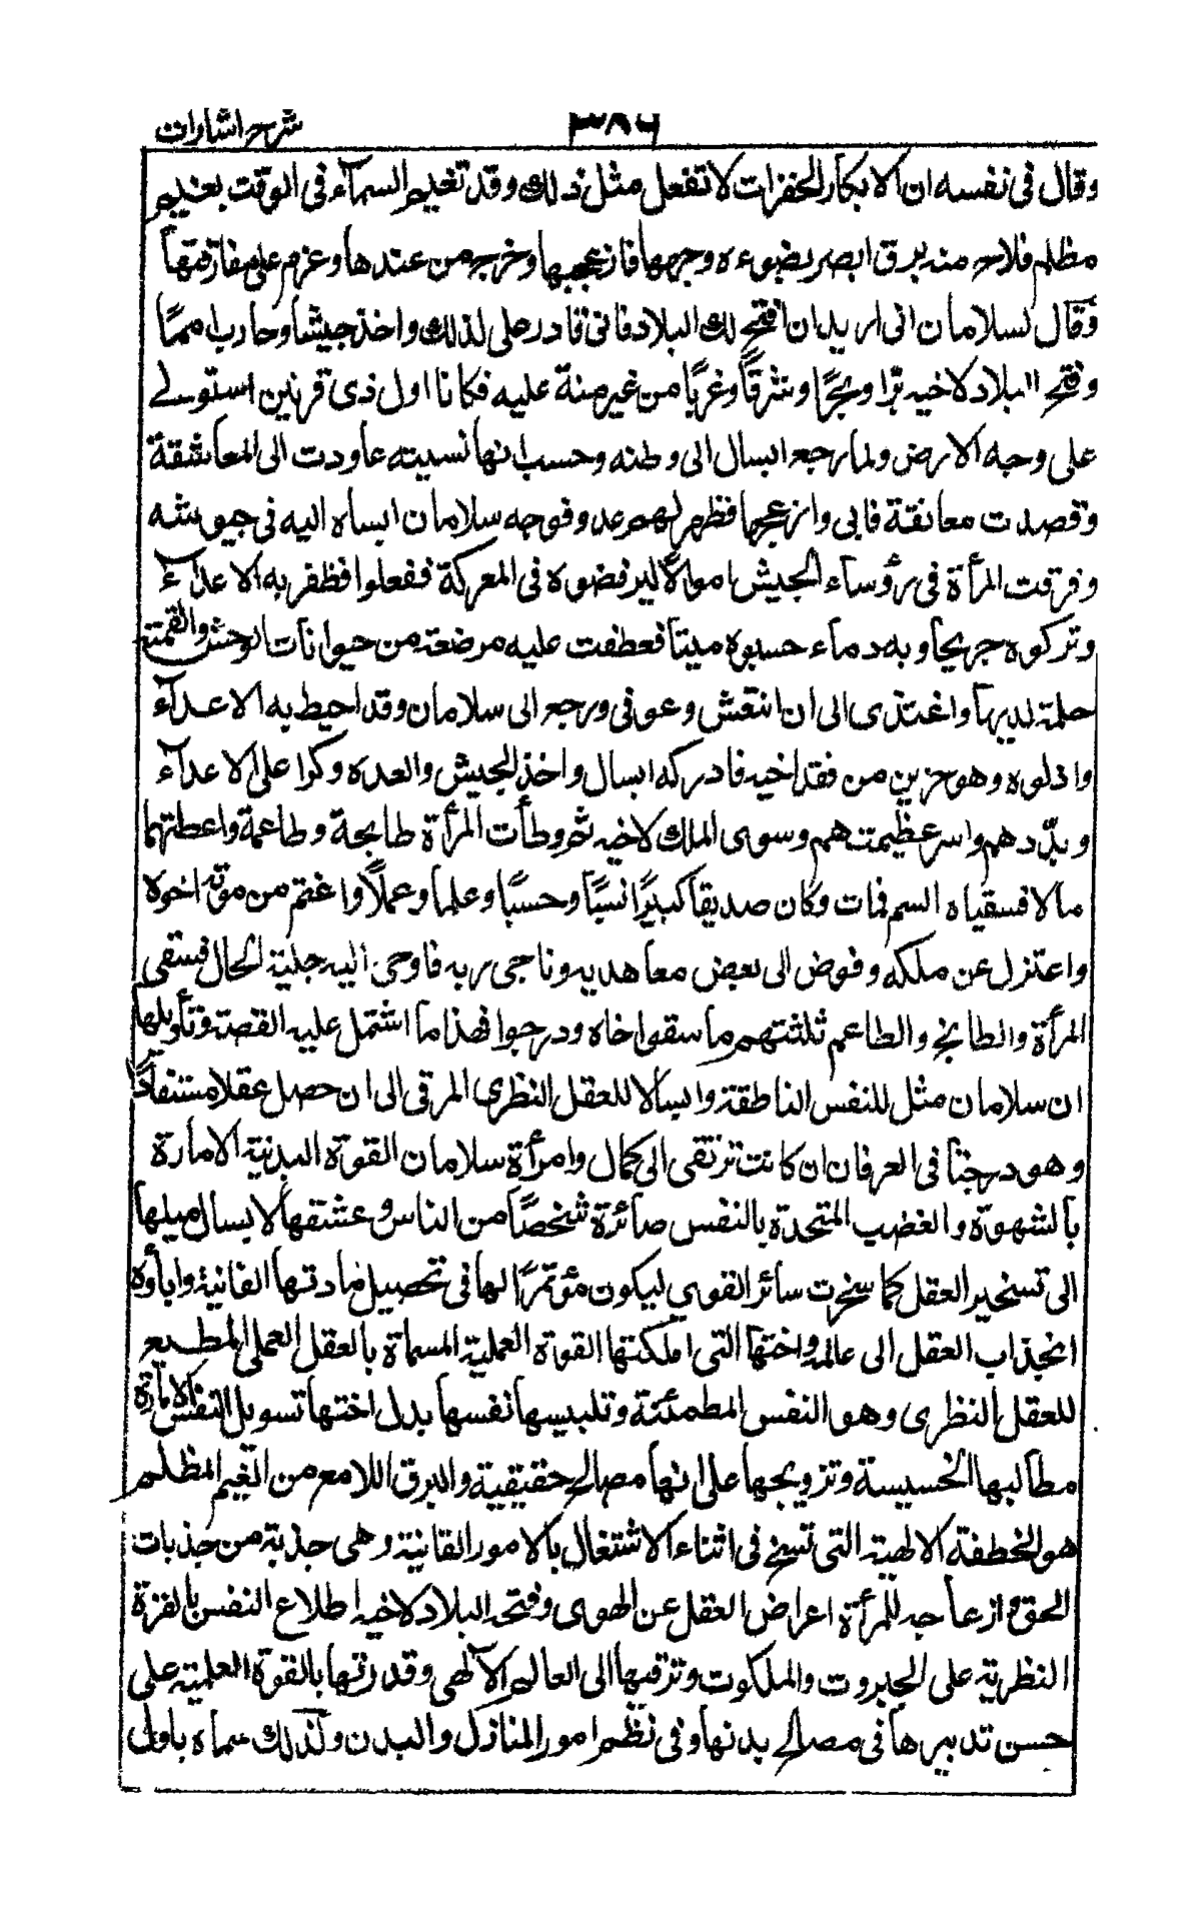 شرح اشارات
٣٨٦
وقال فى نفسه ان الابكار الخفرات لا تفعل مثل ذلك وقد تغيم السمآء فى الوقت بغيم
مظلم فلاح منه برق ابصر بضوءه وجهها فازعجها وخرج من عندها وعزم على مفارقتها
وقال لسلامان انى اريد ان افتح لك البلاد فانى قادر على لذلك واخذ جيشا وحارب امماً
وفتح البلاد لاخيه برّا وبحرًا وشرقاً وغربًا من غير منة عليه فكانا اول ذى قرنين استولے
على وجه الارض ولما رجع ابسال الى وطنه وحسب انها نسيته عاودت الى المعاشقة
وقصدت معانقة فابى وازعجها فظهر لهم عدو فوجه سلامان ابساه اليه فى جيوشه
وفرقت المرأة فى رؤساء الجيش اموالًا ليرفضوه فى المعركة ففعلوا فظفر به الاعدآء
وتركوه جريحاً وبه دماء حسبوه ميتا فعطفت عليه مرضعة من حيوانات الوحش والقمته
حلمة ثديها واغتذى الى ان انتعش وعوفى ورجع الى سلامان وقد احيط به الاعدآء
واذلوه وهو حزين من فقد اخيه فادركه ابسال واخذ الجيش والعدة وكرا على الاعدآء
وبدّدهم واسر عظيمتهم وسوى الملك لاخيه ثم وطأت المرأة طابخة وطاعمة واعطتهما
مالا فسقياه السم فمات وكان صديقا كبيرًا نسبًا وحسبًا وعلما وعملاً واغتم من موته اخوه
واعتزل عن ملكه وفوض الى بعض معاهديه وناجى ربه فاوحى اليه جلية الحال فسقى
المرأة والطابخ والطاعم ثلثتهم ما سقوا خاه ودرجوا فهذا ما اشتمل عليه القصة وتأويلها
ان سلامان مثل للنفس الناطقة وابسالا للعقل النظرى المرقى الى ان حصل عقلا مستفاداً
وهو درجتنا فى العرفان ان كانت ترتقى الى كمال وامرأة سلامان القوة البدنية الامارة
بالشهوة والغضب المتحدة بالنفس صائرة شخصًا من الناس وعشقها لابسال ميلها
الى تسخير العقل كما سخرت سائر القوى ليكون مؤتمرًا لها فى تحصيل مادتها الفانية واباؤه
انجذاب العقل الى عالمه واختها التى املكتها القوة العملية المسماة بالعقل العملى المطيع
للعقل النظرى وهو النفس المطمئنة وتلبيسها نفسها بدل اختها تسويل النفس الامارة
مطالبها الخسيسة وتزويجها على انها مصالح حقيقية والبرق اللامع من الغيم المظلم
هو الخطفة الالهية التى تسنح فى اثناء الاشتغال بالامور الفانية وهى جذبة من جذبات
الحق وازعاجه للمرأة اعراض العقل عن الهوى وفتحه البلاد لاخيه اطلاع النفس بالقزة
النظرية على الجبروت والملكوت وترقيها الى العالم الآلهى وقدرتها بالقوة العلمية على
حسن تدبيرها فى مصالح بدنها وفى نظم امور المنازل والبدن ولذلك سماه باول